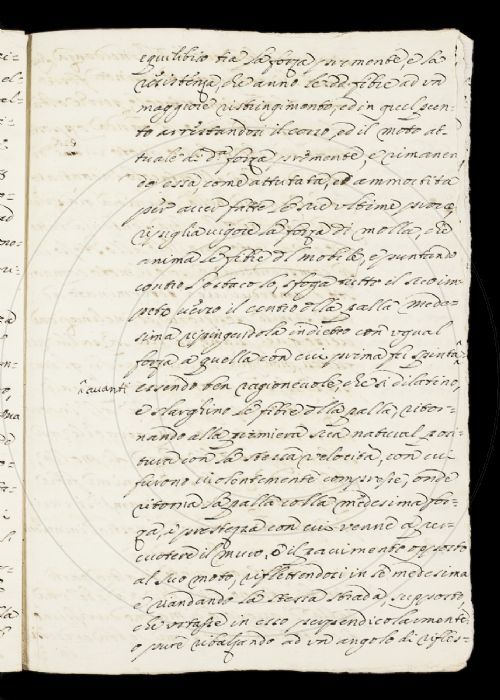 equilibrio tra la forza premente, e la
resistenza, che anno le dd. fibre ad un
maggiore ristringimento, ed in quel pun-
to arrestandosi il corso, ed il moto at-
tuale di d.ª forza premente e rimanen-
do essa come attutata, ed ammortita
per aver fatte le sue ultime prove,
ripiglia vigore la forza di molla, che
anima le fibre del mobile, e puntando
contro l'ostacolo, sfoga tutto il suo im-
peto verso il centro della palla mede-
sima respingendola indietro con ugual
forza a quella con cui prima fu spinta
avanti
essendo ben ragionevole, che si dilatino,
e slarghino le fibre della palla, ritor-
nando alla primiera sua natural posi-
tura con la stessa velocità, con cui
furono violentemente compresse, onde
ritorna la palla colla medesima for-
za, e prestezza con cui venne a per-
cuotere il muro, o il pavimento opposto
al suo moto, riflettendosi in se medesima
e rifacendo la stessa strada, supposto,
che urtasse in esso perpendicolarmente,
o pure ribalzando ad un angolo di rifles-